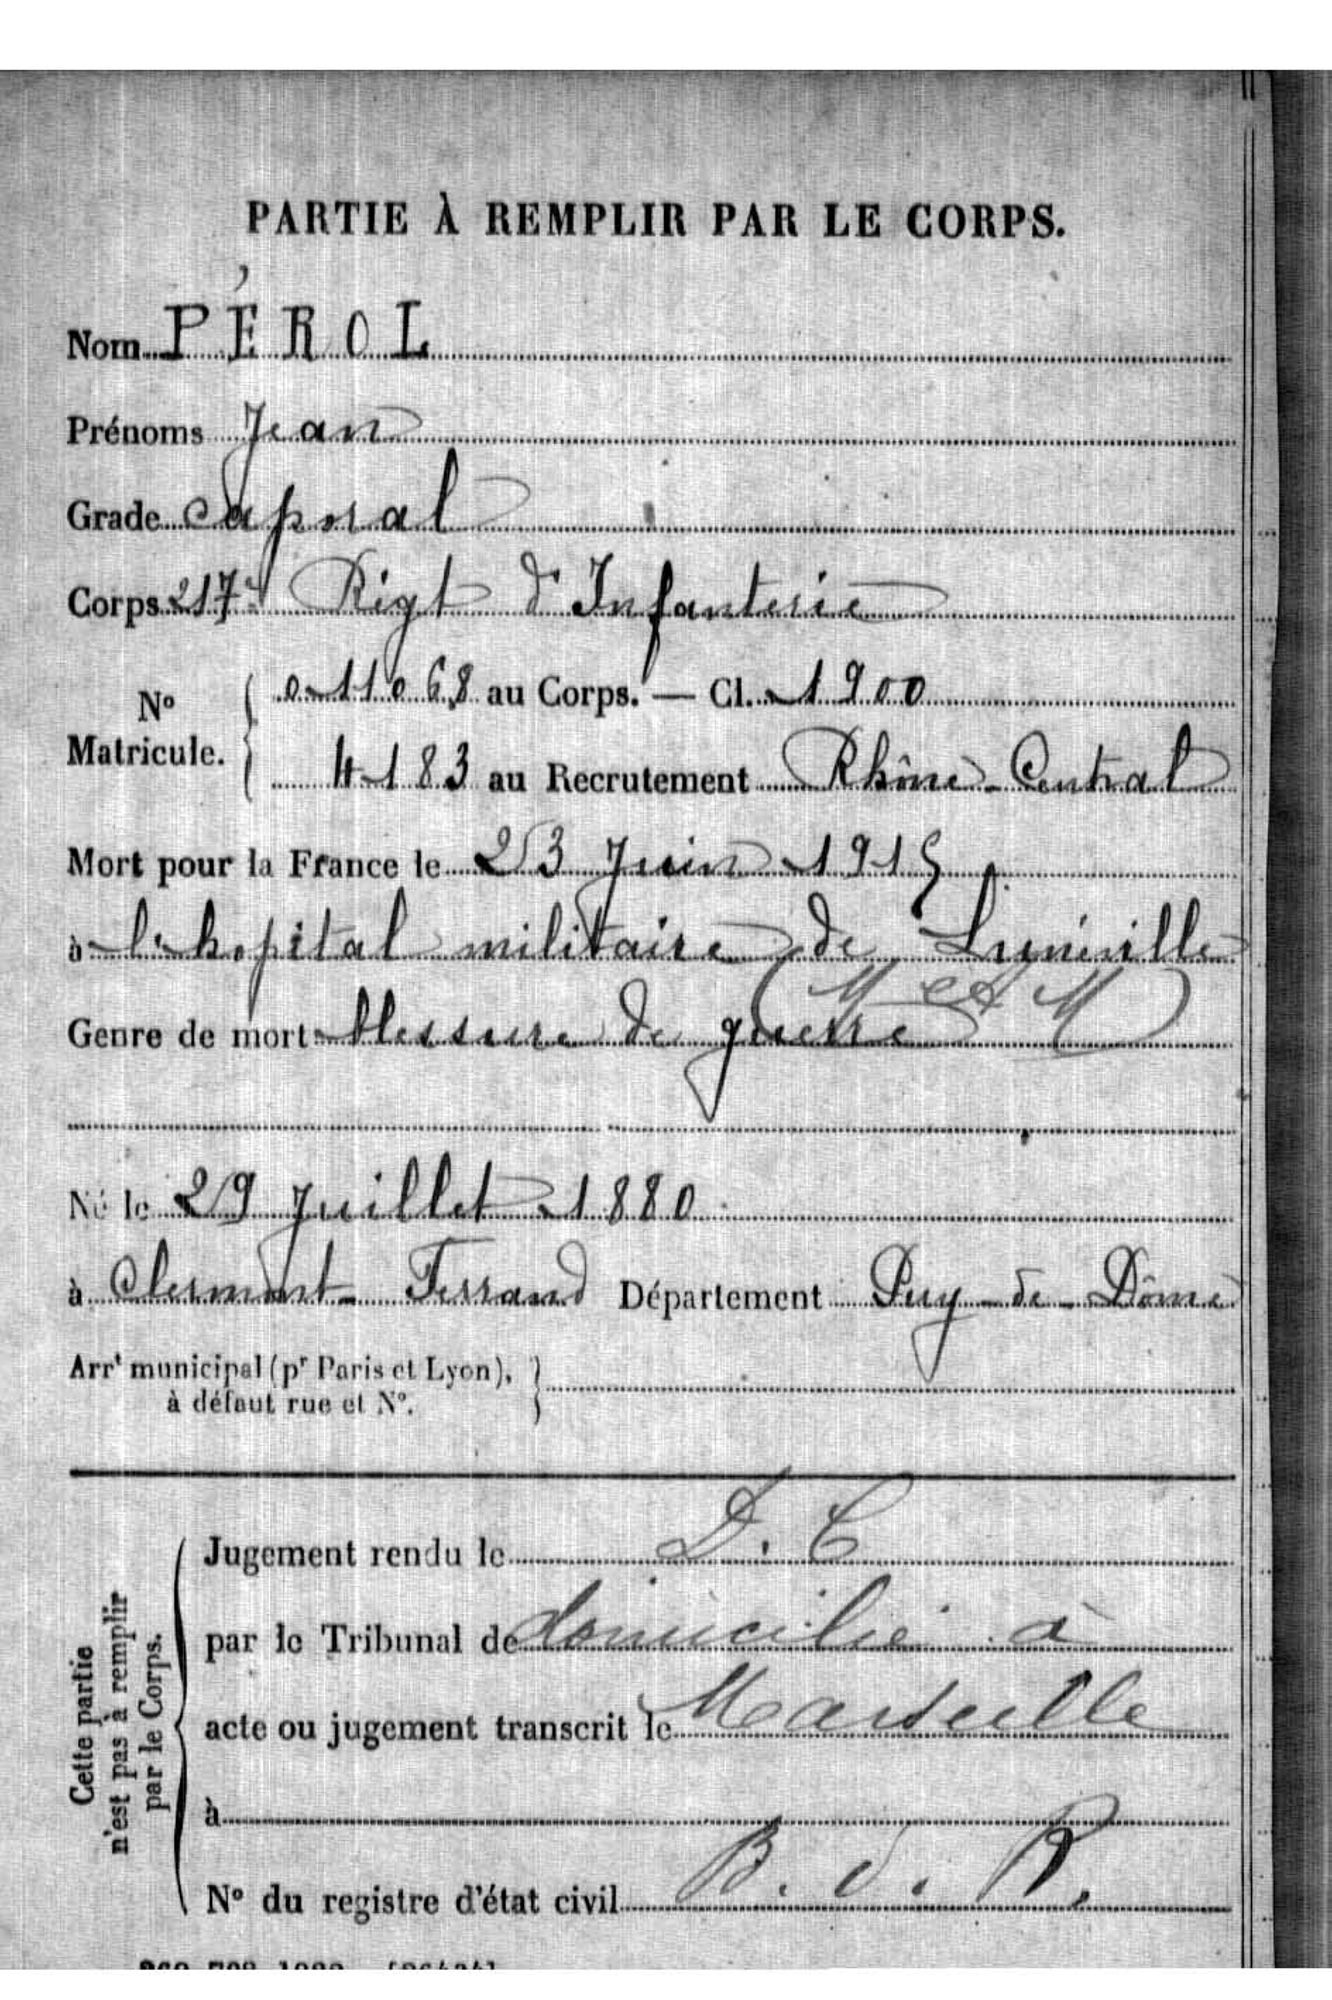 PARTIE À REMPLIR PAR LE CORPS.
Nom PÉROL
Prénoms Jean
Grade Caporal
Corps 217e Régt d'Infanterie
No
Matricule.
011068 au Corps. — Cl. 1900
4183 au Recrutement Rhône-Central
Mort pour la France le 23 Juin 1915
à l'hopital militaire de Lunéville
(M et M)
Genre de mort blessure de guerre
Né le 29 Juillet 1880
à Clermont-Ferrand Département Puy-de-Dôme
Arrt municipal (pr Paris et Lyon),
à défaut rue et No.
Cette partie
n'est pas à remplir
par le Corps.
Jugement rendu le D. C
par le Tribunal de domicilié à
acte ou jugement transcrit le Marseille
à
No du registre d'état civil B. d. R.